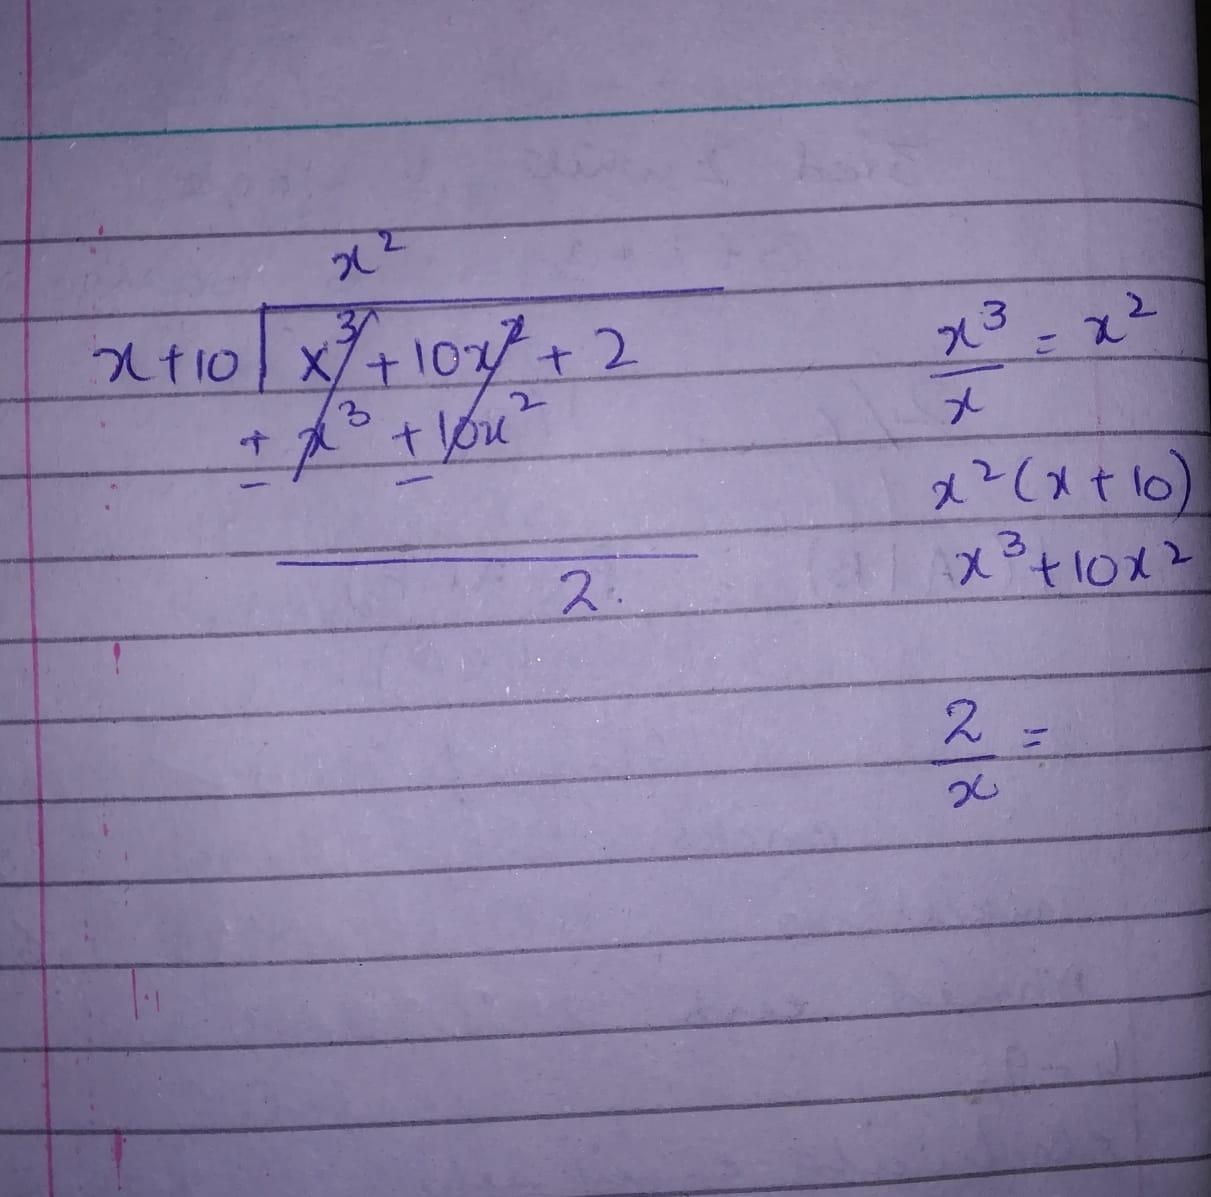 x²
x+10 | x³ + 10x² + 2
+ x³ + 10x²
− −
2.
x³/x = x²
x²(x + 10)
x³ + 10x²
2/x =